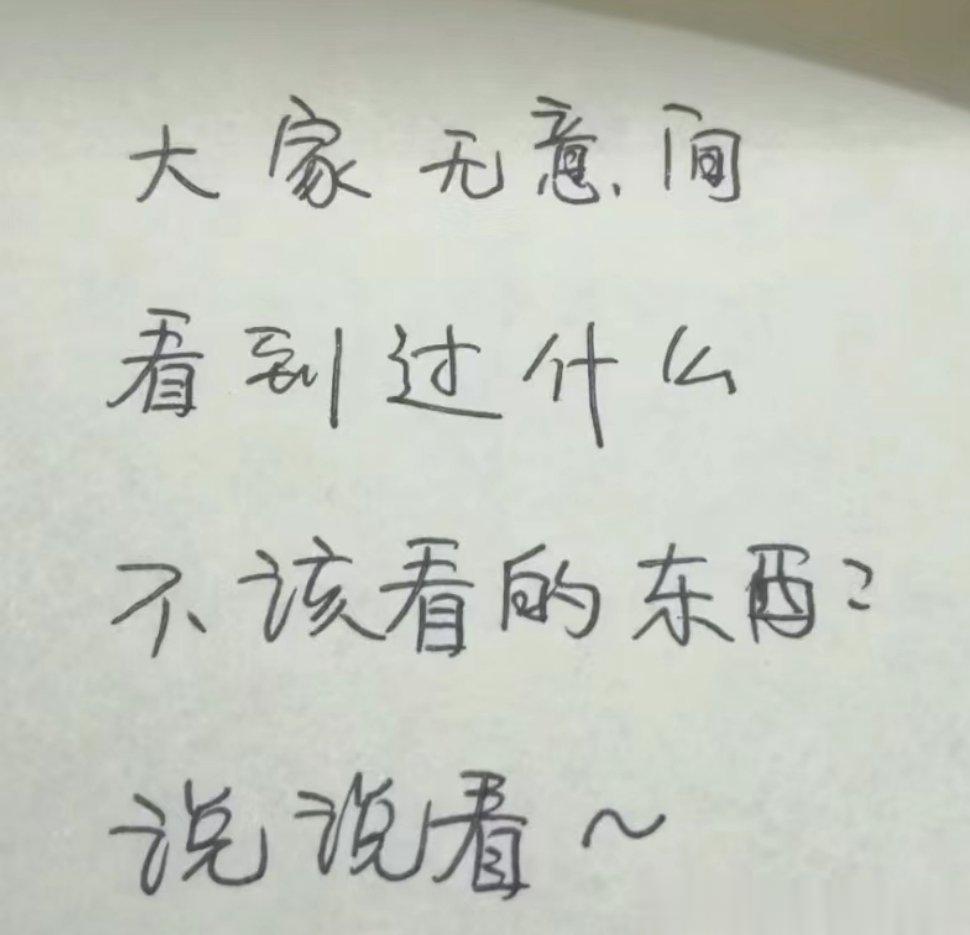 大家无意间
看到过什么
不该看的东西?
说说看~